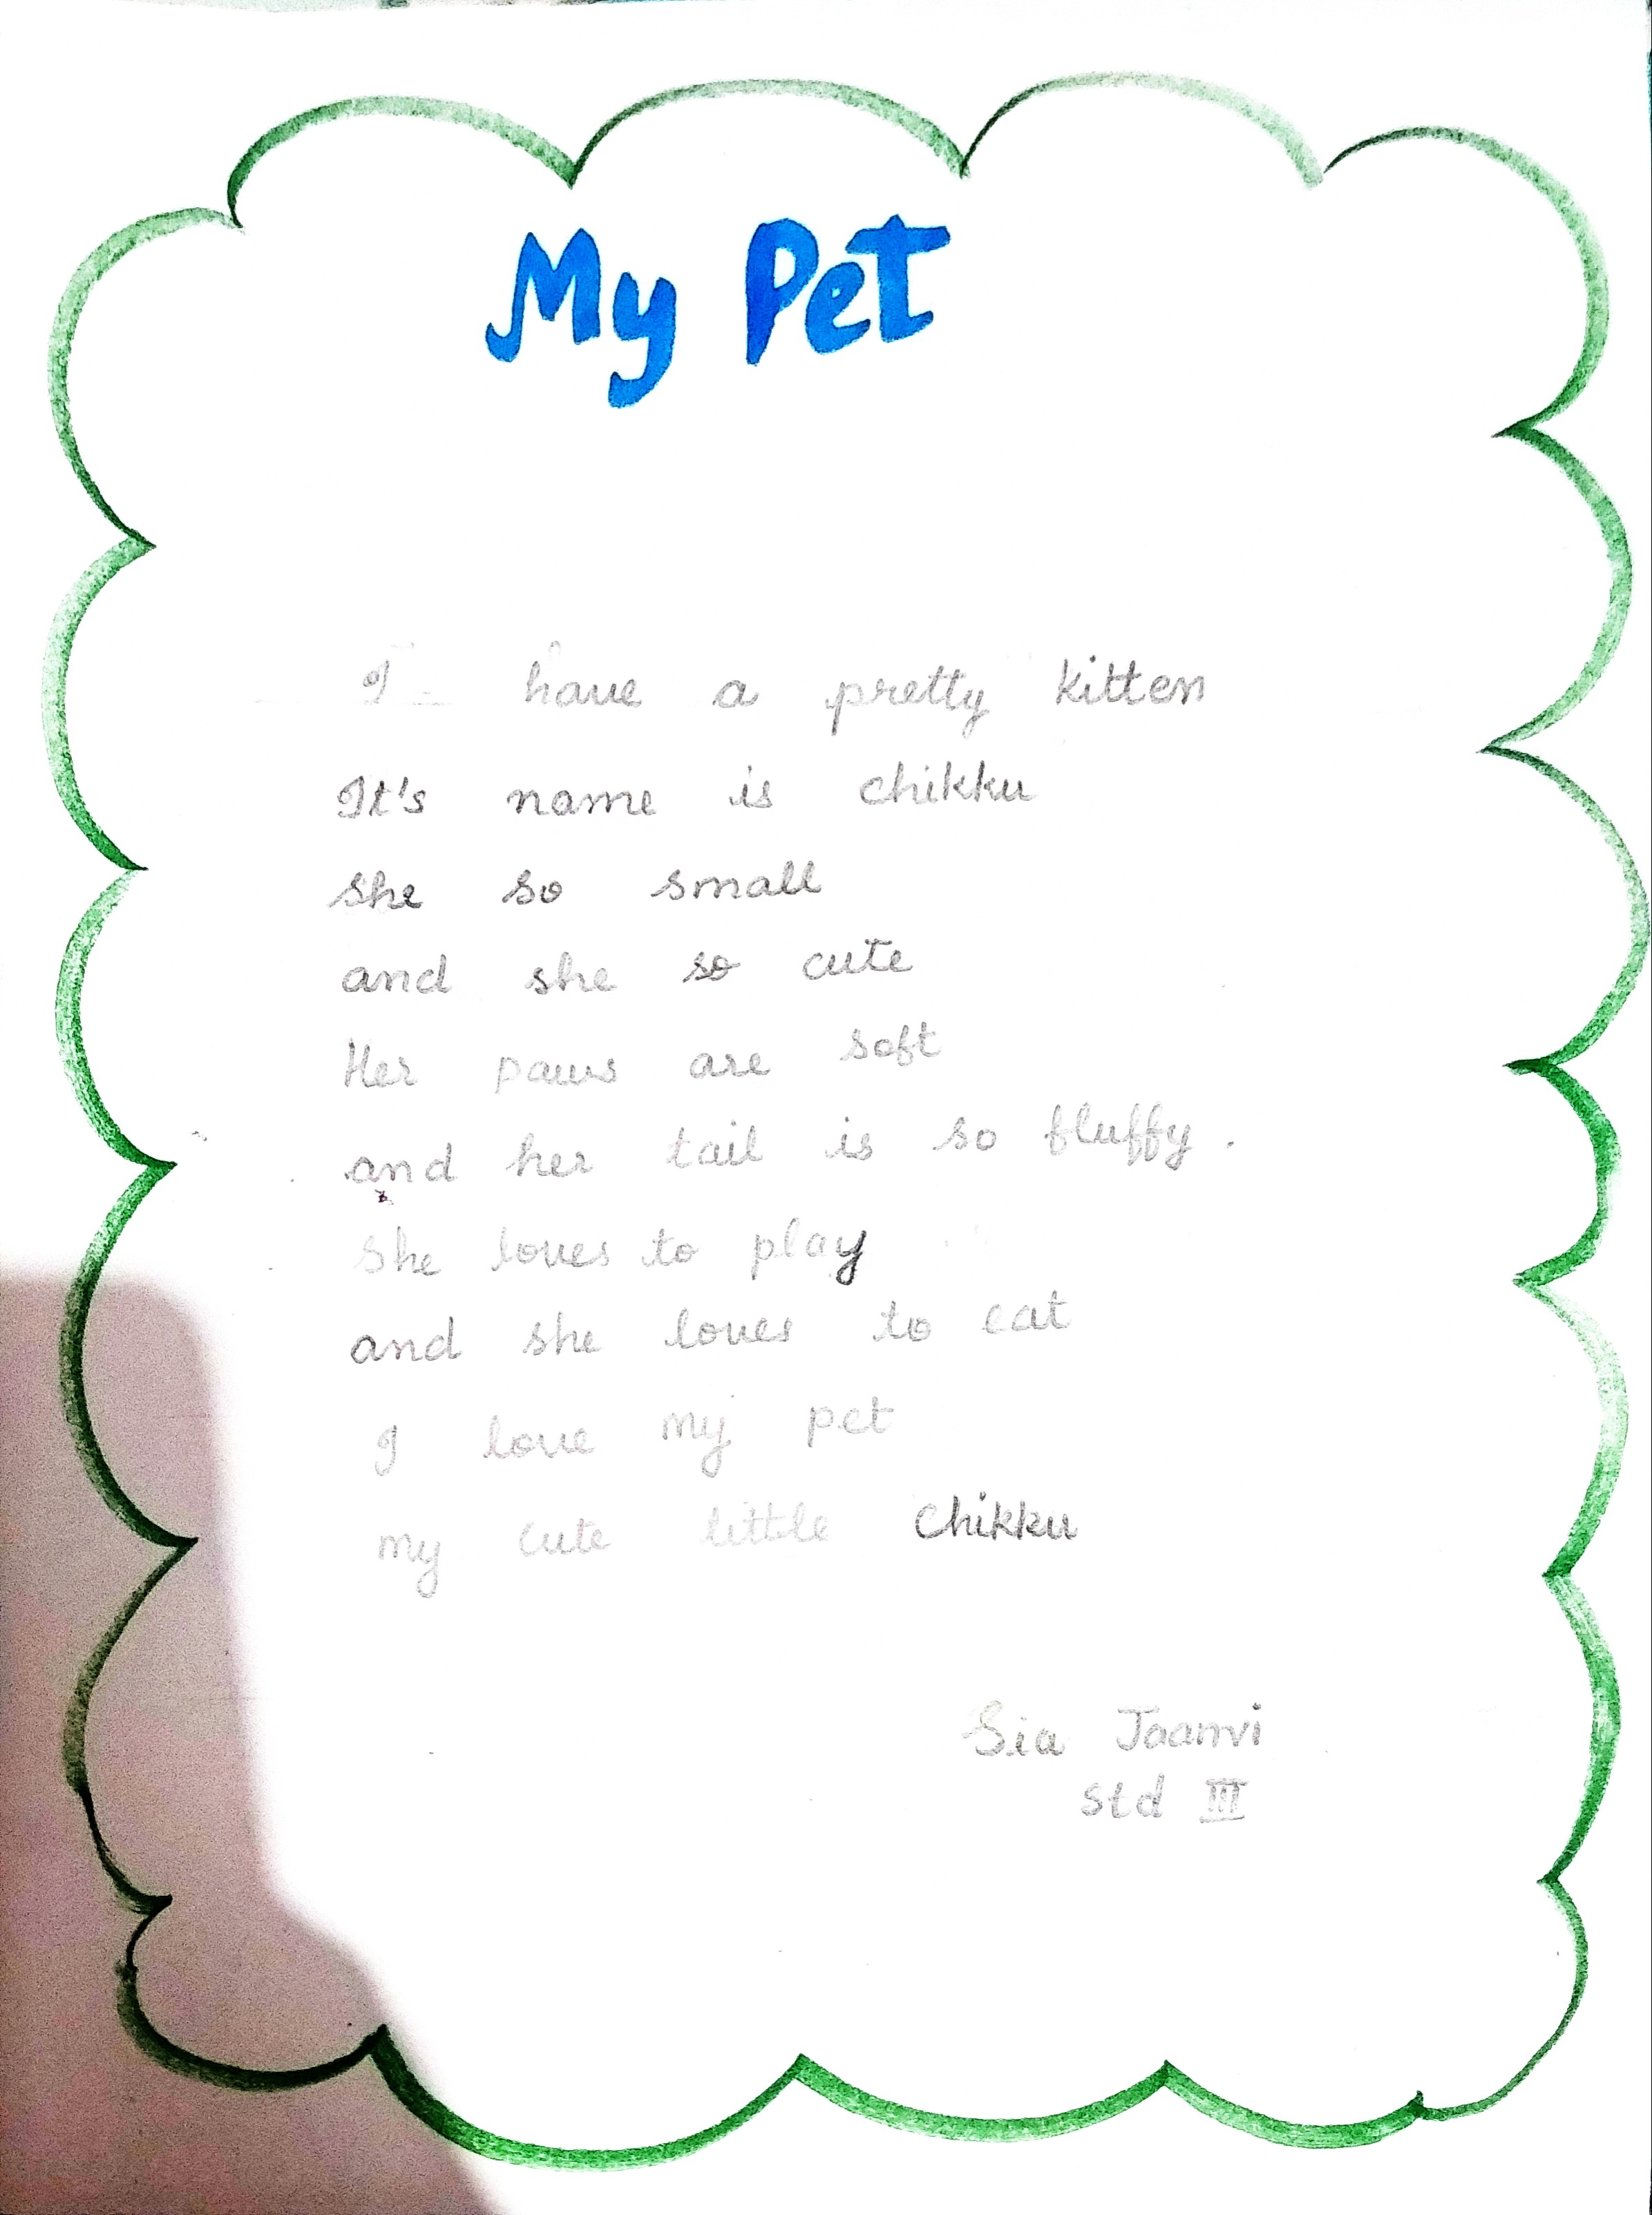 My Pet
I have a pretty kitten
It's name is chikku
she so small
and she so cute
Her paws are soft
and her tail is so fluffy.
She loves to play
and she loves to eat
I love my pet
my cute little Chikku
Sia Jaanvi
std III